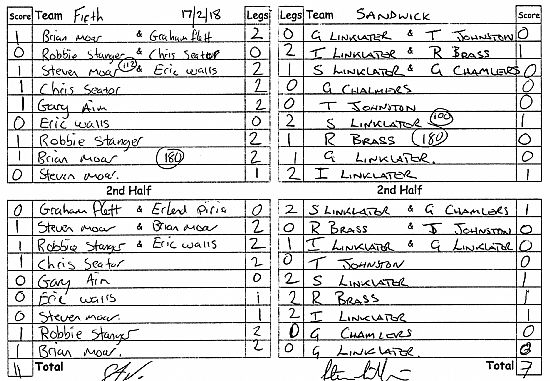 Score Team Firth 17/2/18 Legs Legs Team SANDWICK Score
1 Brian Moar & Graham Flett 2 0 G LINKLATER & T JOHNSTON 0
0 Robbie Stanger & Chris Seator 0 2 I LINKLATER & R BRASS 1
1 Steven Moar (112) & Eric Walls 2 1 S LINKLATER & G CHAMLERS 0
1 Chris Seator 2 0 G CHALMERS 0
1 Gary Aim 2 0 T JOHNSTON 0
0 Eric Walls 0 2 S LINKLATER (100) 1
1 Robbie Stanger 2 1 R BRASS (180) 0
1 Brian Moar (180) 2 1 G LINKLATER. 0
0 Steven Moar. 1 2 I LINKLATER 1
2nd Half 2nd Half
0 Graham Flett & Erlend Pirie 0 2 S LINKLATER & G CHAMLERS 1
1 Steven Moar & Brian Moar 2 0 R BRASS & T JOHNSTON 0
1 Robbie Stanger & Eric Walls 2 1 I LINKLATER & G LINKLATER 0
1 Chris Seator 2 0 T JOHNSTON 0
0 Gary Aim 0 2 S LINKLATER 1
0 Eric Walls 1 2 R BRASS 1
0 Steven Moar 1 2 I LINKLATER 1
1 Robbie Stanger 2 0 G CHAMLERS 0
1 Brian Moar. 2 0 G LINKLATER. 0
11 Total Total 7